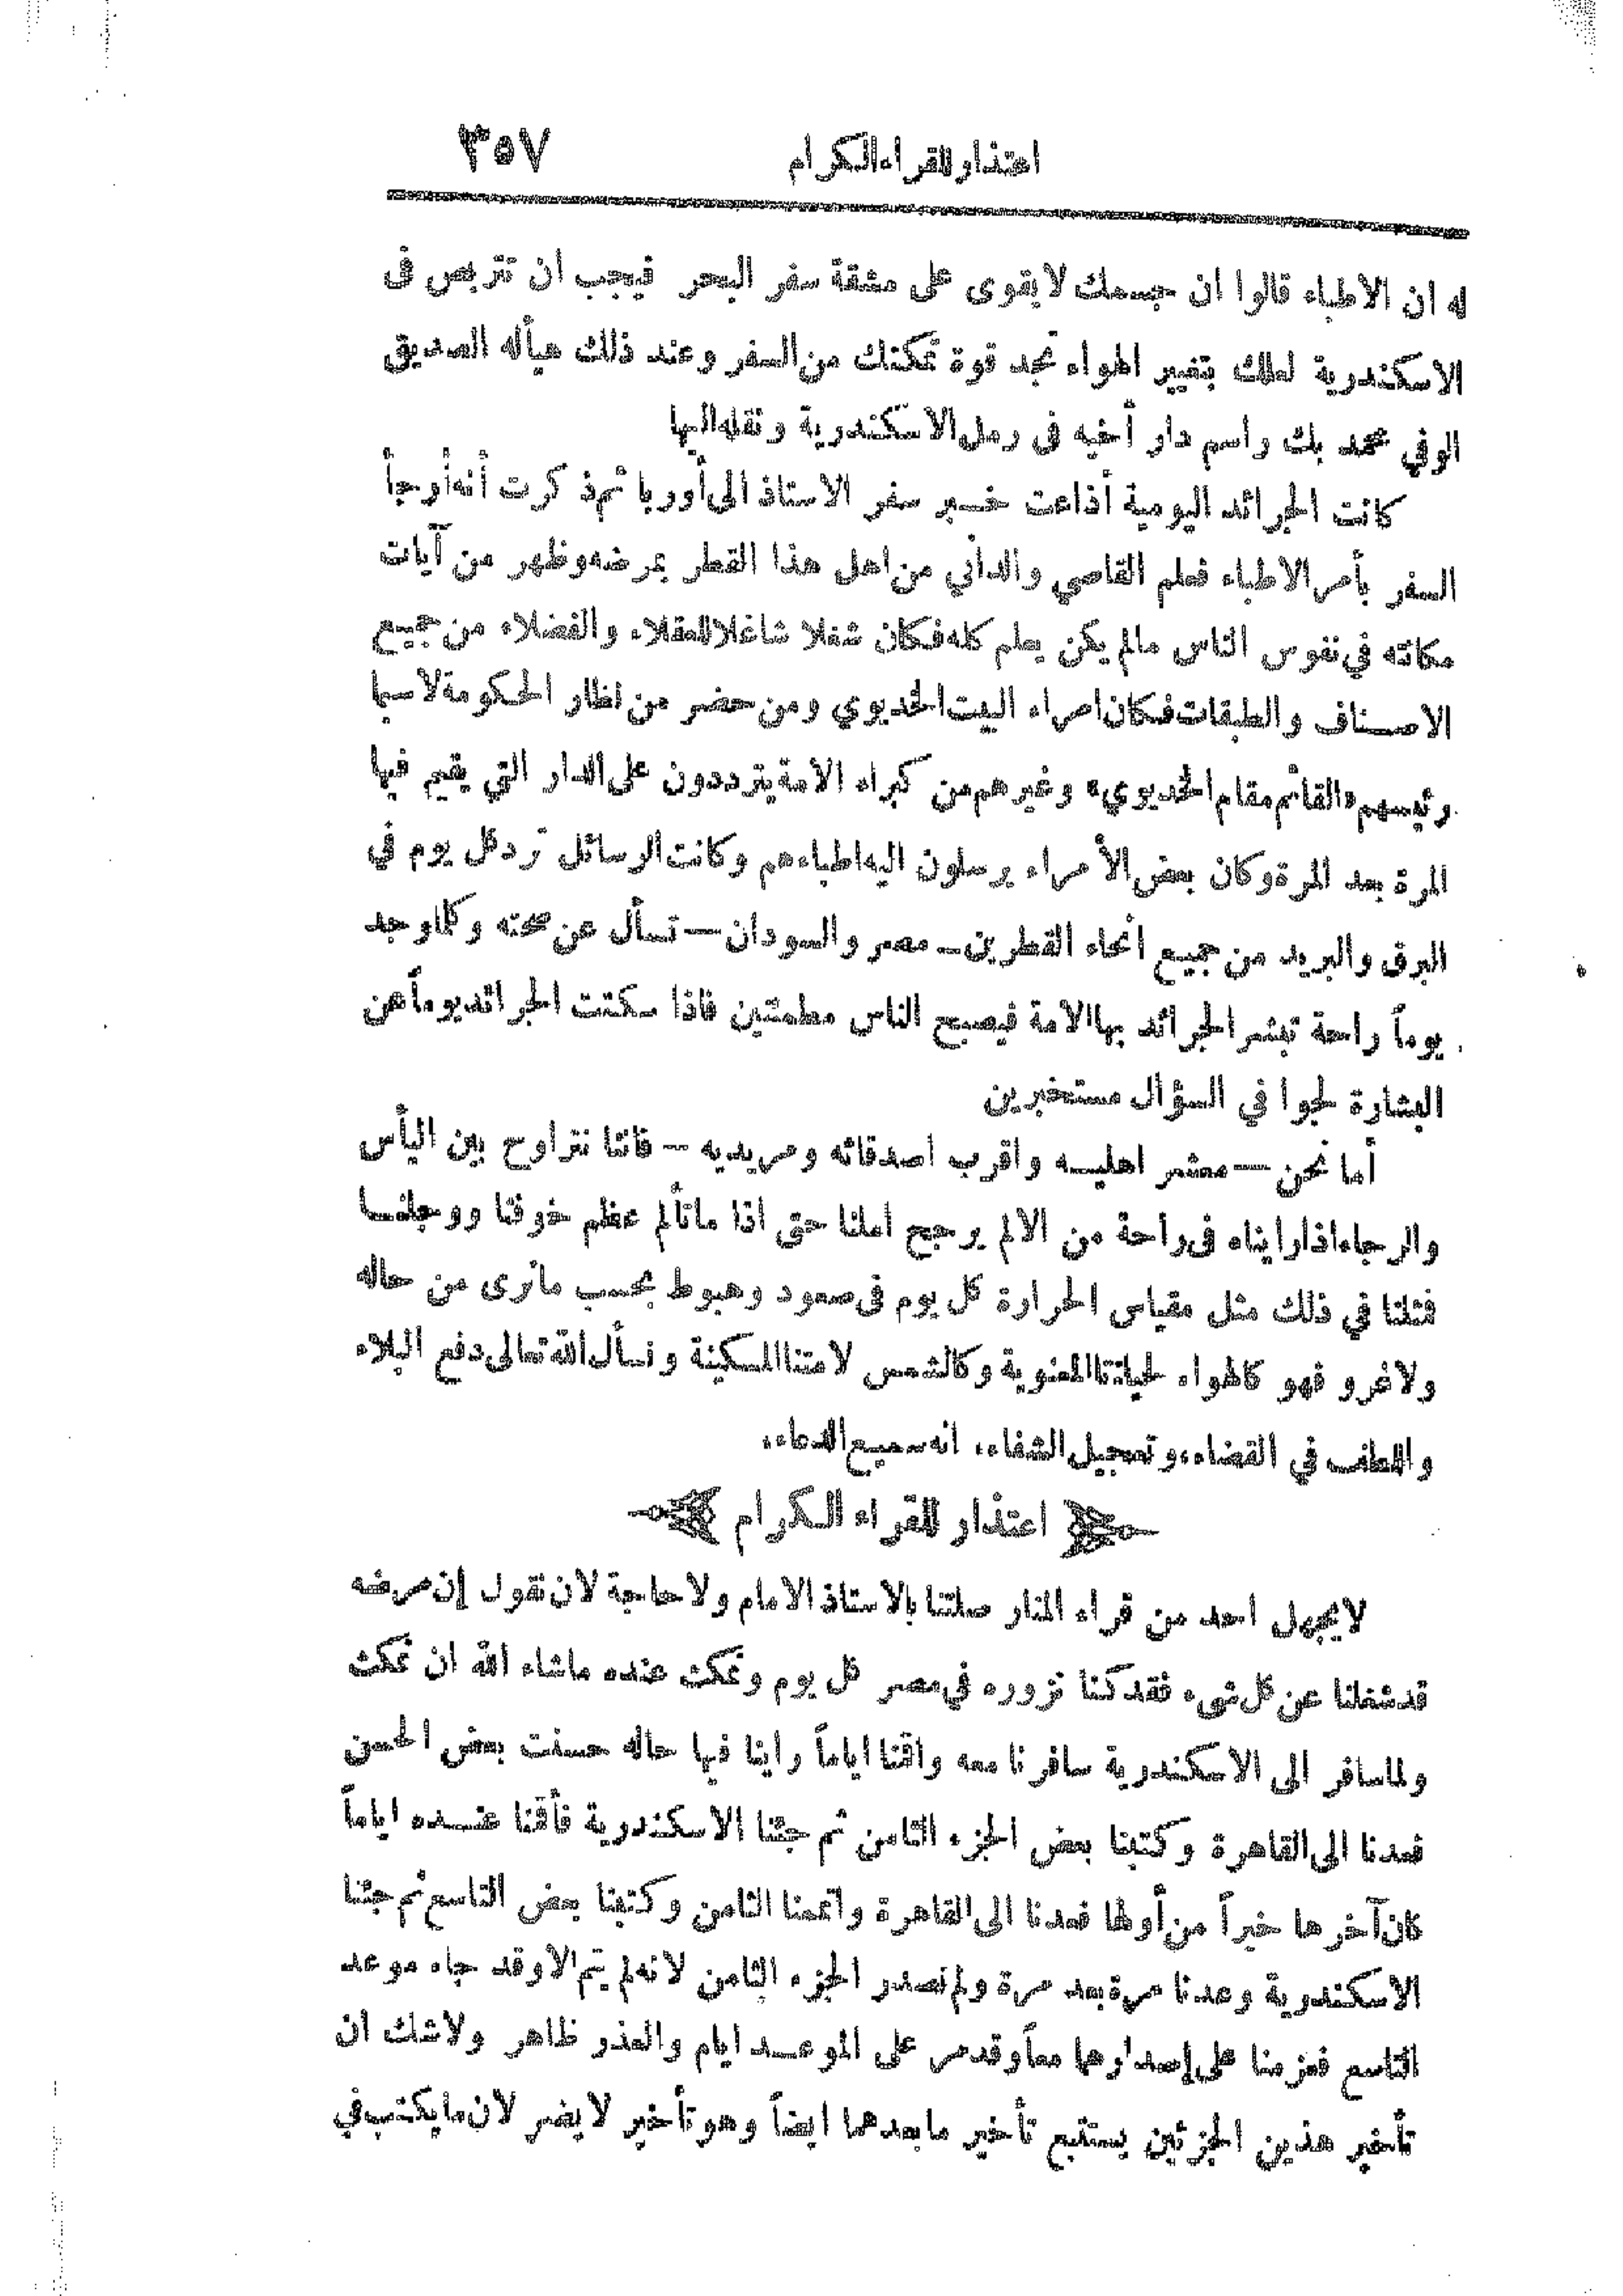 اعتذار للقراء الكرام ٣٥٧
له ان الاطباء قالوا ان جسمك لا يقوى على مشقة سفر البحر فيجب ان تتربص فى
الاسكندرية لعلك بتغيير الهواء تجد قوة تمكنك من السفر وعند ذلك هيأ له الصديق
الوفي محمد بك راسم دار أخيه فى رمل الاسكندرية ونقله اليها
كانت الجرائد اليومية أذاعت خبر سفر الاستاذ الى أوربا ثم ذكرت أنه أرجأ
السفر بأمر الاطباء فعلم القاصي والداني من اهل هذا القطر بمرضه وظهر من آيات
مكانته في نفوس الناس مالم يكن يعلم كله فكان شغلا شاغلا للعقلاء والفضلاء من جميع
الاصناف والطبقات فكان امراء البيت الخديوي ومن حضر من نظار الحكومة لاسيما
رئيسهم «القائم مقام الخديوي» وغيرهم من كبراء الامة يترددون على الدار التي يقيم فيها
المرة بعد المرة وكان بعض الأمراء يرسلون اليه اطباءهم وكانت الرسائل ترد كل يوم في
البرق والبريد من جميع أنحاء القطرين ـ مصر والسودان — تسأل عن صحته وكلما وجد
يوماً راحة تبشر الجرائد بها الامة فيصبح الناس مطمئنين فاذا سكتت الجرائد يوماً عن
البشارة لجوا في السؤال مستخبرين
أما نحن — معشر اهليه واقرب اصدقائه ومريديه – فاننا نتراوح بين اليأس
والرجاء اذا رايناه فى راحة من الالم يرجح املنا حتى اذا ما تألم عظم خوفنا ووجلنا
فمثلنا في ذلك مثل مقياس الحرارة كل يوم فى صعود وهبوط بحسب مانرى من حاله
ولا غرو فهو كالهواء لحياتنا المعنوية وكالشمس لامتنا المسكينة ونسأل الله تعالى دفع البلاء
واللطف في القضاء، وتعجيل الشفاء، انه سميع الدعاء،
اعتذار للقراء الكرام
لا يجهل احد من قراء المنار صلتنا بالاستاذ الامام ولا حاجة لان نقول إن مرضه
قد شغلنا عن كل شىء فقد كنا نزوره في مصر كل يوم ونمكث عنده ماشاء الله ان نمكث
ولما سافر الى الاسكندرية سافرنا معه واقمنا اياماً راينا فيها حاله حسنت بعض الحسن
فعدنا الى القاهرة وكتبنا بعض الجزء الثامن ثم جئنا الاسكندرية فأقمنا عنده اياماً
كان آخرها خيراً من أولها فعدنا الى القاهرة واتممنا الثامن وكتبنا بعض التاسع ثم جئنا
الاسكندرية وعدنا مرة بعد مرة ولم نصدر الجزء الثامن لانه لم يتم الا وقد جاء موعد
التاسع فعزمنا على إصدارهما معاً وقد مر على الموعد ايام والعذر ظاهر ولاشك ان
تأخير هذين الجزئين يستتبع تأخير مابعدهما ايضاً وهو تأخير لا يضر لان ما يكتب في